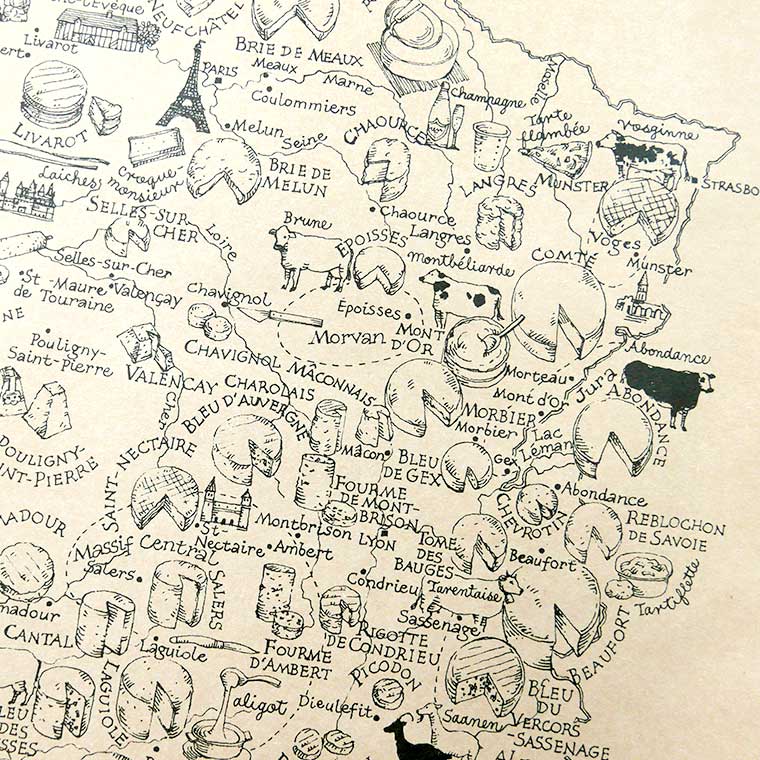 NEUFCHÂTEL
Livarot
LIVAROT
PARIS
BRIE DE MEAUX
Meaux
Marne
Coulommiers
Melun
Seine
BRIE DE
MELUN
Champagne
CHAOURCE
Chaource
Moselle
Tarte
flambée
Vosginne
MUNSTER
STRASBO
LANGRES
Langres
Voges
Munster
Laîches
Croque-
monsieur
SELLES-SUR-
CHER
Selles-sur-Cher
Loire
St-Maure
de Touraine
Valençay
VALENÇAY
Cher
Pouligny-
Saint-Pierre
POULIGNY-
SAINT-PIERRE
Brune
ÉPOISSES
Époisses
Morvan
montbéliarde
COMTÉ
MONT
D'OR
Mont d'Or
Morteau
Jura
Chavignol
CHAVIGNOL
CHAROLAIS
MÂCONNAIS
Mâcon
MORBIER
Morbier
Abondance
ABONDANCE
Abondance
Lac
Léman
Gex
BLEU
DE GEX
BLEU D'AUVERGNE
SAINT-NECTAIRE
St-
Nectaire
Massif Central
Montbrison
FOURME
DE MONT-
BRISON
LYON
Ambert
FOURME
D'AMBERT
TOME
DES
BAUGES
CHEVROTIN
REBLOCHON
DE SAVOIE
Tartiflette
Beaufort
BEAUFORT
Tarentaise
Condrieu
RIGOTTE
DE CONDRIEU
Sassenage
BLEU
DU
VERCORS
-SASSENAGE
Saanen
PICODON
Dieulefit
Salers
SALERS
CANTAL
Laguiole
LAGUIOLE
aligot